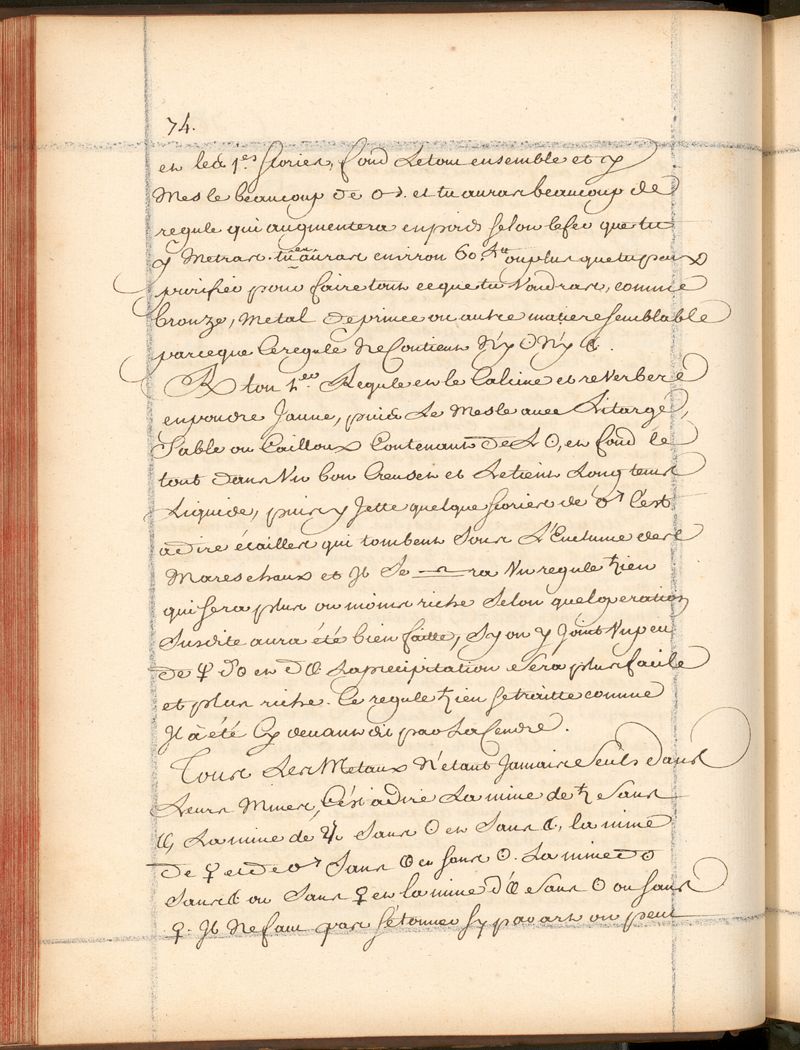 74.
et les 1.es scories, fond le tout ensemble et y
mesle beaucoup de ♂. et tu auras beaucoup de
regule qui augmentera en poids selon le feu que tu
y metras. tu en auras environ 60 ou plus que tu peux
purifier pour faire tout ce que tu voudras, comme
bronze, metal de prince ou autre matiere semblable
parceque ce regule ne contient n'y ☉ n'y ☾.
ton regule et le calcine et reverbere
en poudre jaune, puis le mesle avec litarge,
sable ou cailloux contenant de l ☉, et fond le
tout dans un bon creuset et le tient long tems
liquide, puis y jette quelque scories de ♂ c'est
a dire écailles qui tombent sous l'enclume des
mareschaux et il se ra un regule ♄ien
qui sera plus ou moins riche selon que l'operation
susdite aura été bien faitte, sy on y joint un peu
de ♀ d'☉ et d☾ la precipitation sera plus facile
et plus riche. ce regule ♄ien se traitte comme
il a été cy devant dit par la cendre.
Tous les metaux n'etant jamais seuls dans
leurs mines, c'est a dire la mine de ♄ sans
☾, la mine de ♃ sans ☉ et sans ☾, la mine
de ♀ et de ♂ sans ☾ ou sans ☉. la mine d ☉
sans ☾ ou sans ♀ et la mine d'☾ sans ☉ ou sans
♀. il ne faut pas s'étonner sy par art on peut